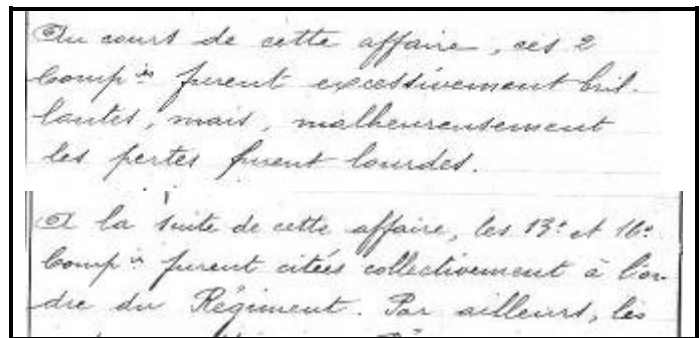 Au cours de cette affaire, ces 2
Comp ies furent excessivement bril-
lantes, mais, malheureusement
les pertes furent lourdes.
A la suite de cette affaire, les 13e et 16e
Comp ies furent citées collectivement à l'or-
dre du Régiment. Par ailleurs, les